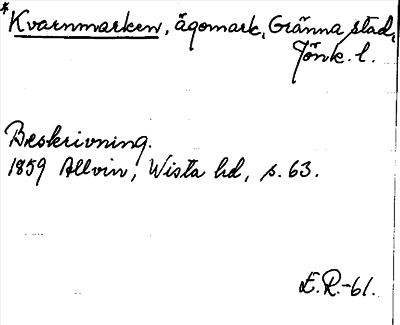 *Kvarnmarken, ägomark, Gränna stad,
Jönk. l.
Beskrivning.
1859 Allvin, Wista hd, s. 63.
E.R.-61.